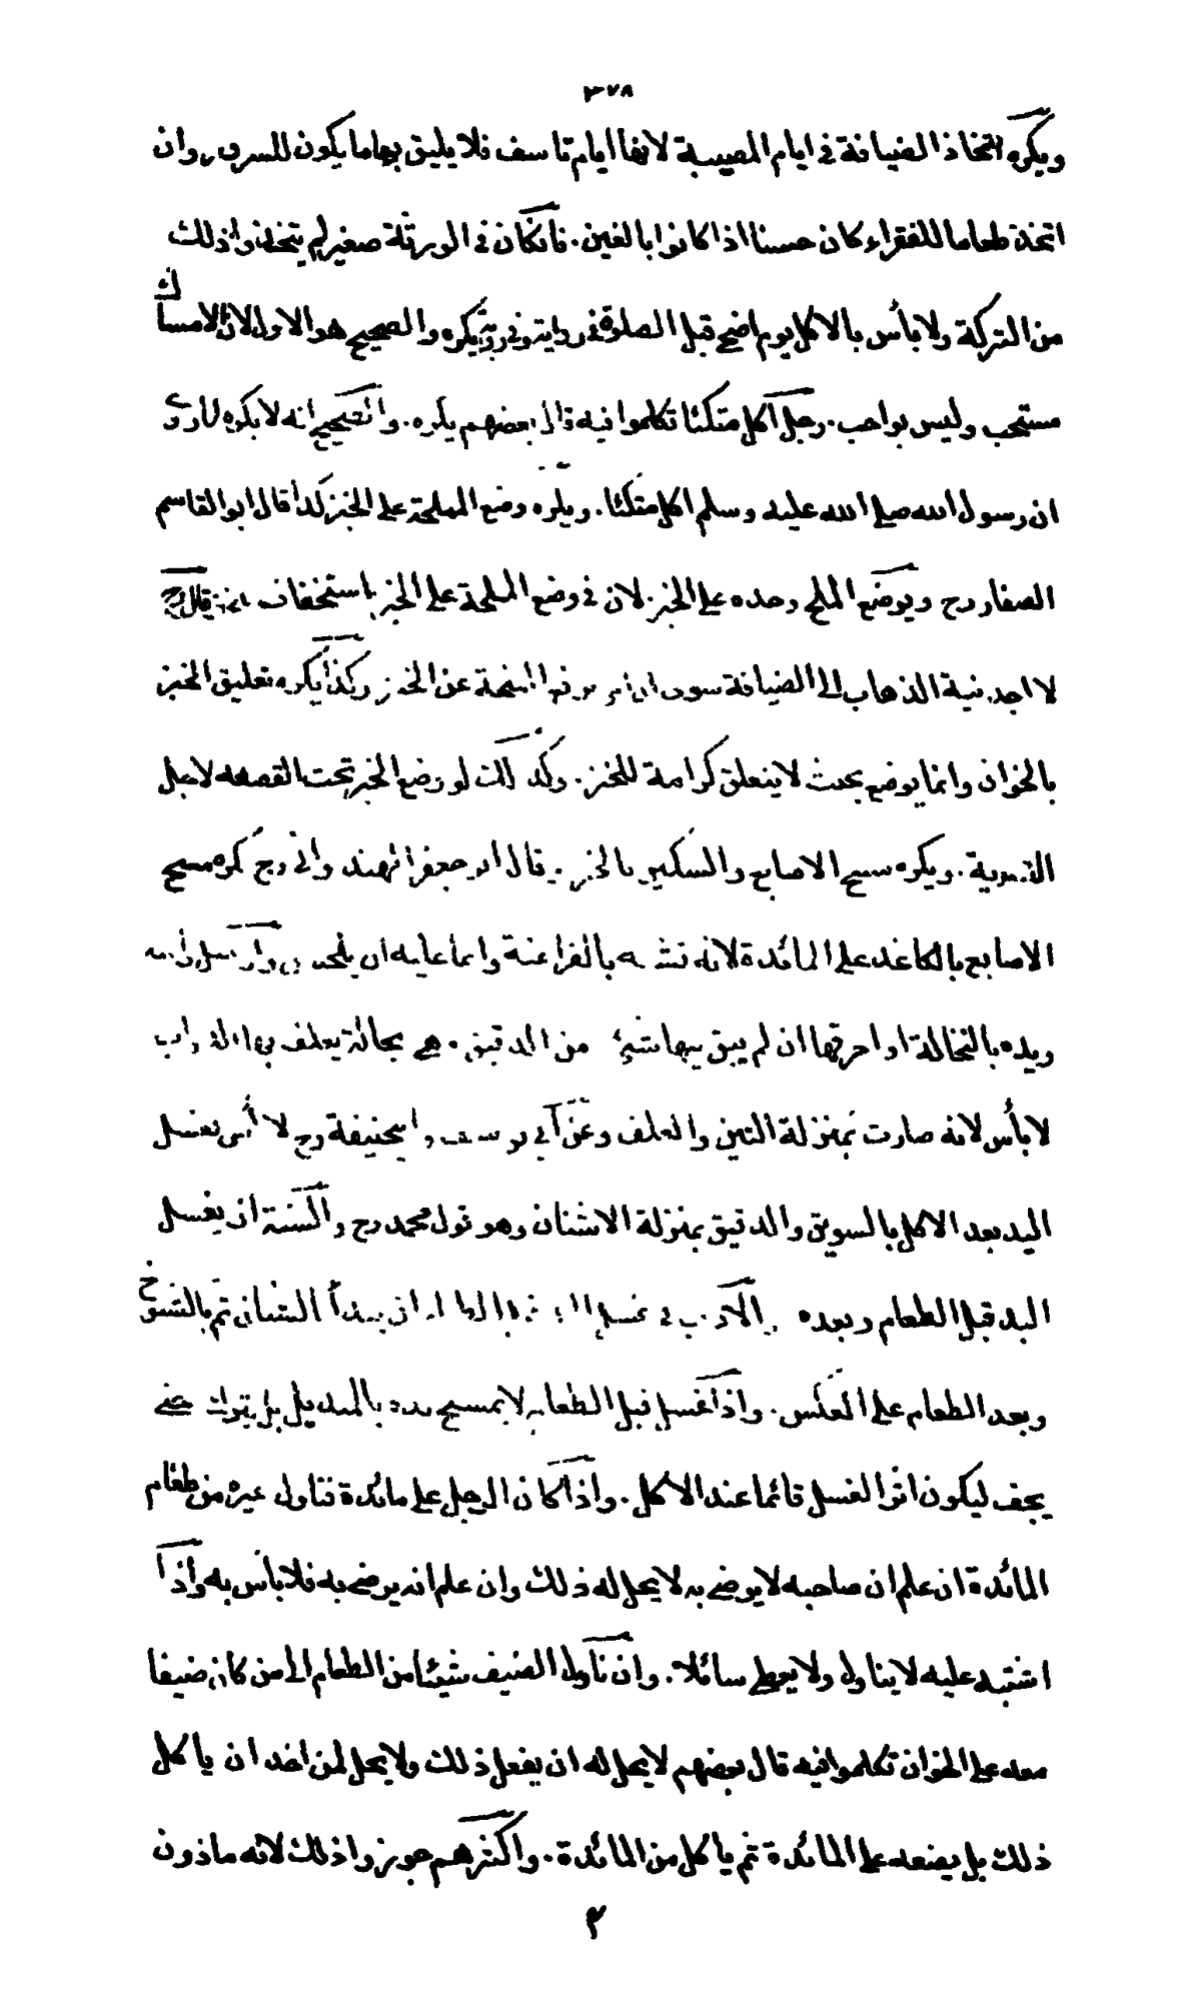 ٣٧٨
ويكره اتخاذ الضيافة في ايام المصيبة لانها ايام تاسف فلا يليق بها ما يكون للسرور وان
اتخذ طعاما للفقراء كان حسنا اذا كانوا بالغين . فان كان في الورثة صغير لم يتخذوا ذلك
من التركة ولا بأس بالاكل يوم اضحى قبل الصلوة في رواية وفي رواية يكره والصحيح هو الاول لان الامساك
مستحب وليس بواجب . رجل آكل متكئا تكلموا فيه قال بعضهم يكره . والصحيح انه لا يكره لما روى
ان رسول الله صلى الله عليه وسلم اكل متكئا . ويكره وضع المملحة على الخبز كذا قال ابو القاسم
الصفار رح ويوضع الملح وحده على الخبز لان في وضع المملحة على الخبز استخفاف قال رح
لا اجد نية الذهاب الى الضيافة سوى ان المملحة عن الخبز وكذا يكره تعليق الخبز
بالخوان وانما يوضع بحيث لا يتعلق كرامة للخبز . وكذلك لو وضع الخبز تحت القصعة لاجل
التسوية . ويكره مسح الاصابع والسكين بالخبز . قال ابو جعفر الهندواني رح كره مسح
الاصابع بالكاغد على المائدة لانه تشبه بالفراعنة
ويده بالنخالة او احرقها ان لم يبق بها شيء من الدقيق . هي نخالة يعلف بها الدواب
لا بأس لانه صارت بمنزلة التبن والعلف وعن ابي يوسف وابي حنيفة رح لا بأس بغسل
اليد بعد الاكل بالسويق والدقيق بمنزلة الاشنان وهو قول محمد رح والسنة ان يغسل
اليد قبل الطعام وبعده والادب في غسل ان يبدأ الشبان ثم بالشيوخ
وبعد الطعام على العكس . واذا غسل قبل الطعام لا يمسح يده بالمنديل بل يترك حتى
يجف ليكون اثر الغسل قائما عند الاكل . واذا كان الرجل على مائدة فناول غيره من طعام
المائدة ان علم ان صاحبه لا يرضى به لا يحل له ذلك وان علم انه يرضى به فلا بأس به واذا
اشتبه عليه لا يناول ولا يعطي سائلا . وان ناول الضيف شيئا من الطعام الى من كان ضيفا
معه على الخوان تكلموا فيه قال بعضهم لا يحل له ان يفعل ذلك ولا يحل لمن اخذ ان ياكل
ذلك بل يضعه على المائدة ثم ياكل من المائدة . واكثرهم جوزوا ذلك لانه ماذون
٢